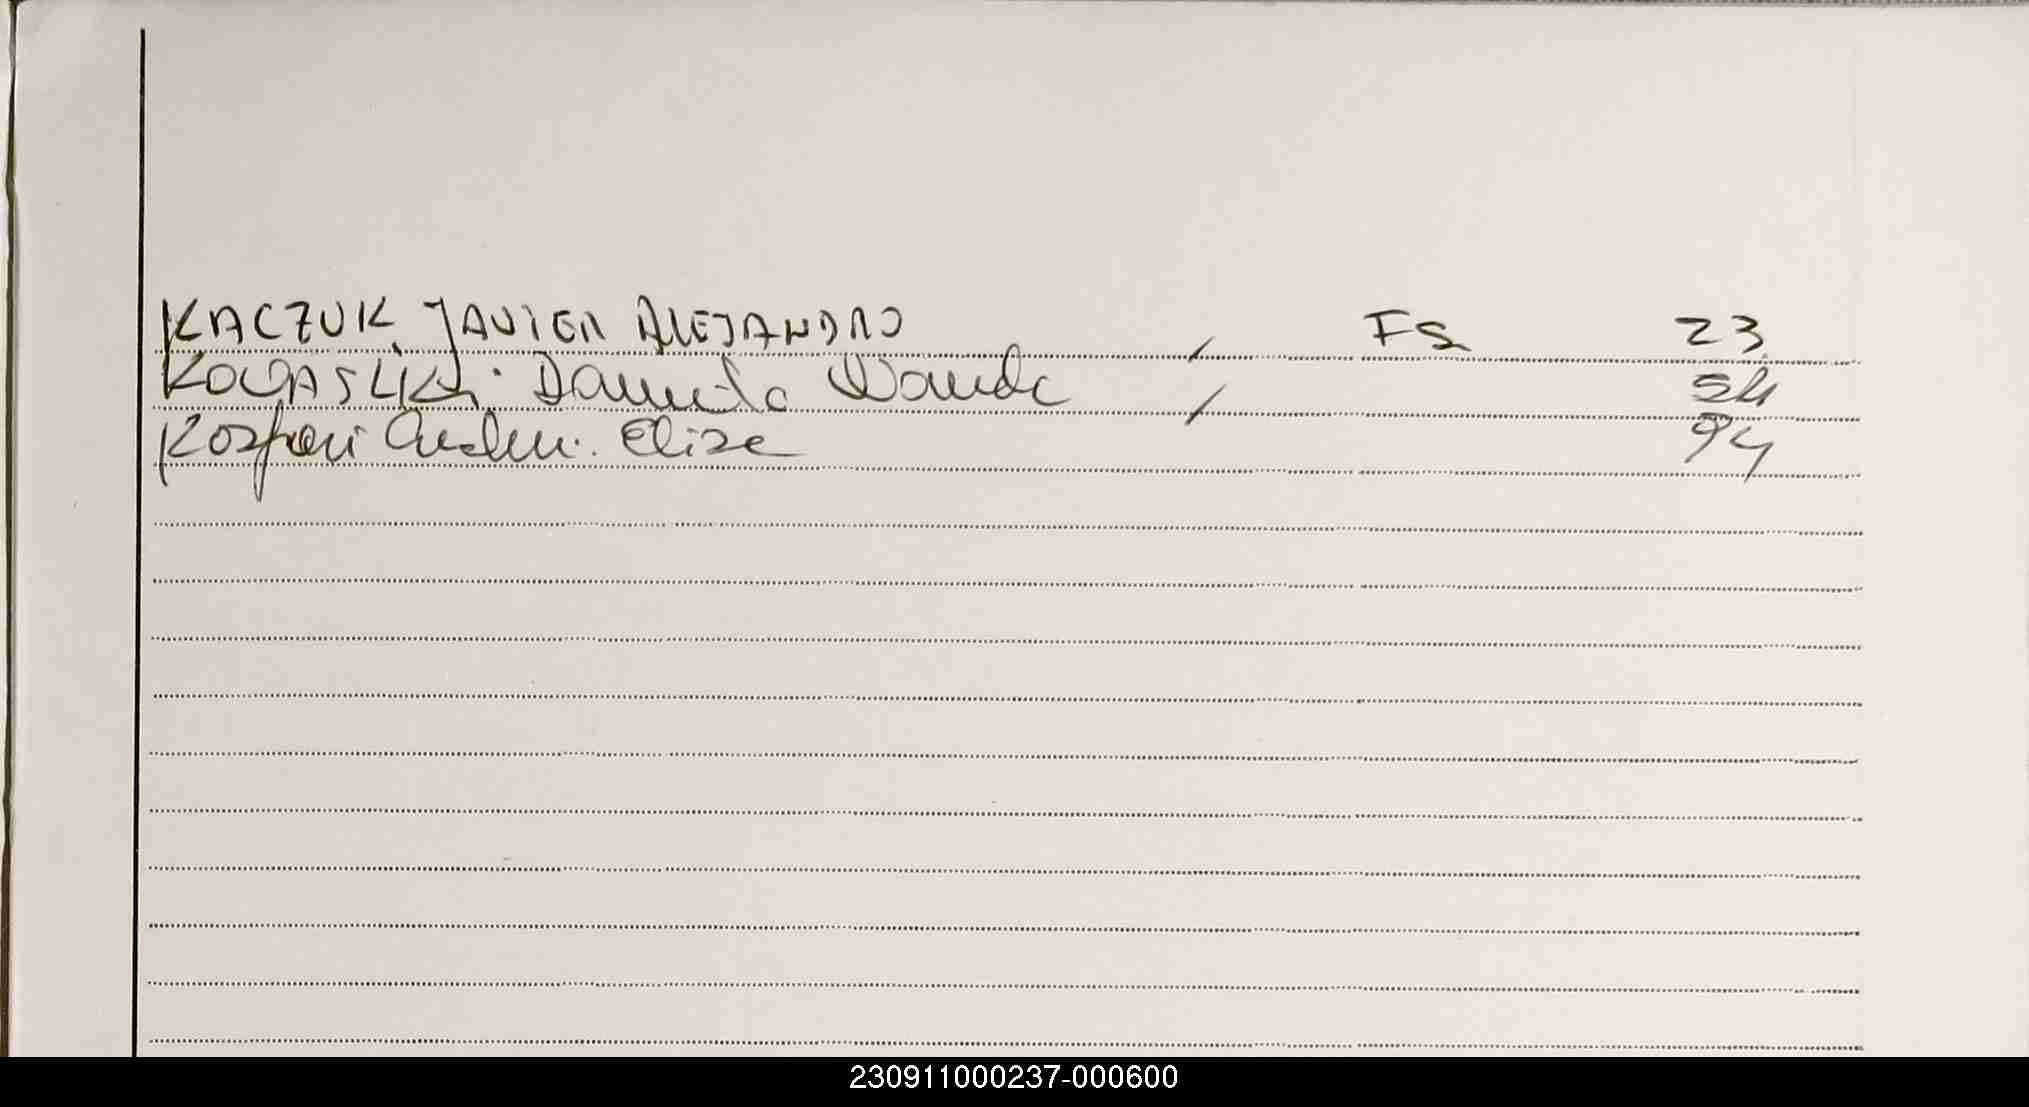 KACZUK, JAVIER ALEJANDRO, FS 23
KOVASLIK, Daniela Wanda, 54
Elize 94
230911000237-000600